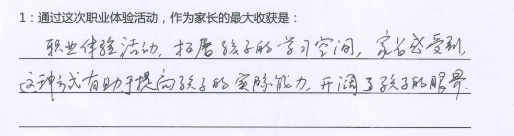 1：通过这次职业体验活动，作为家长的最大收获是：
职业体验活动，拓展孩子的学习空间，家长感受到
这种方式有助于提高孩子的实际能力，开阔了孩子的眼界.